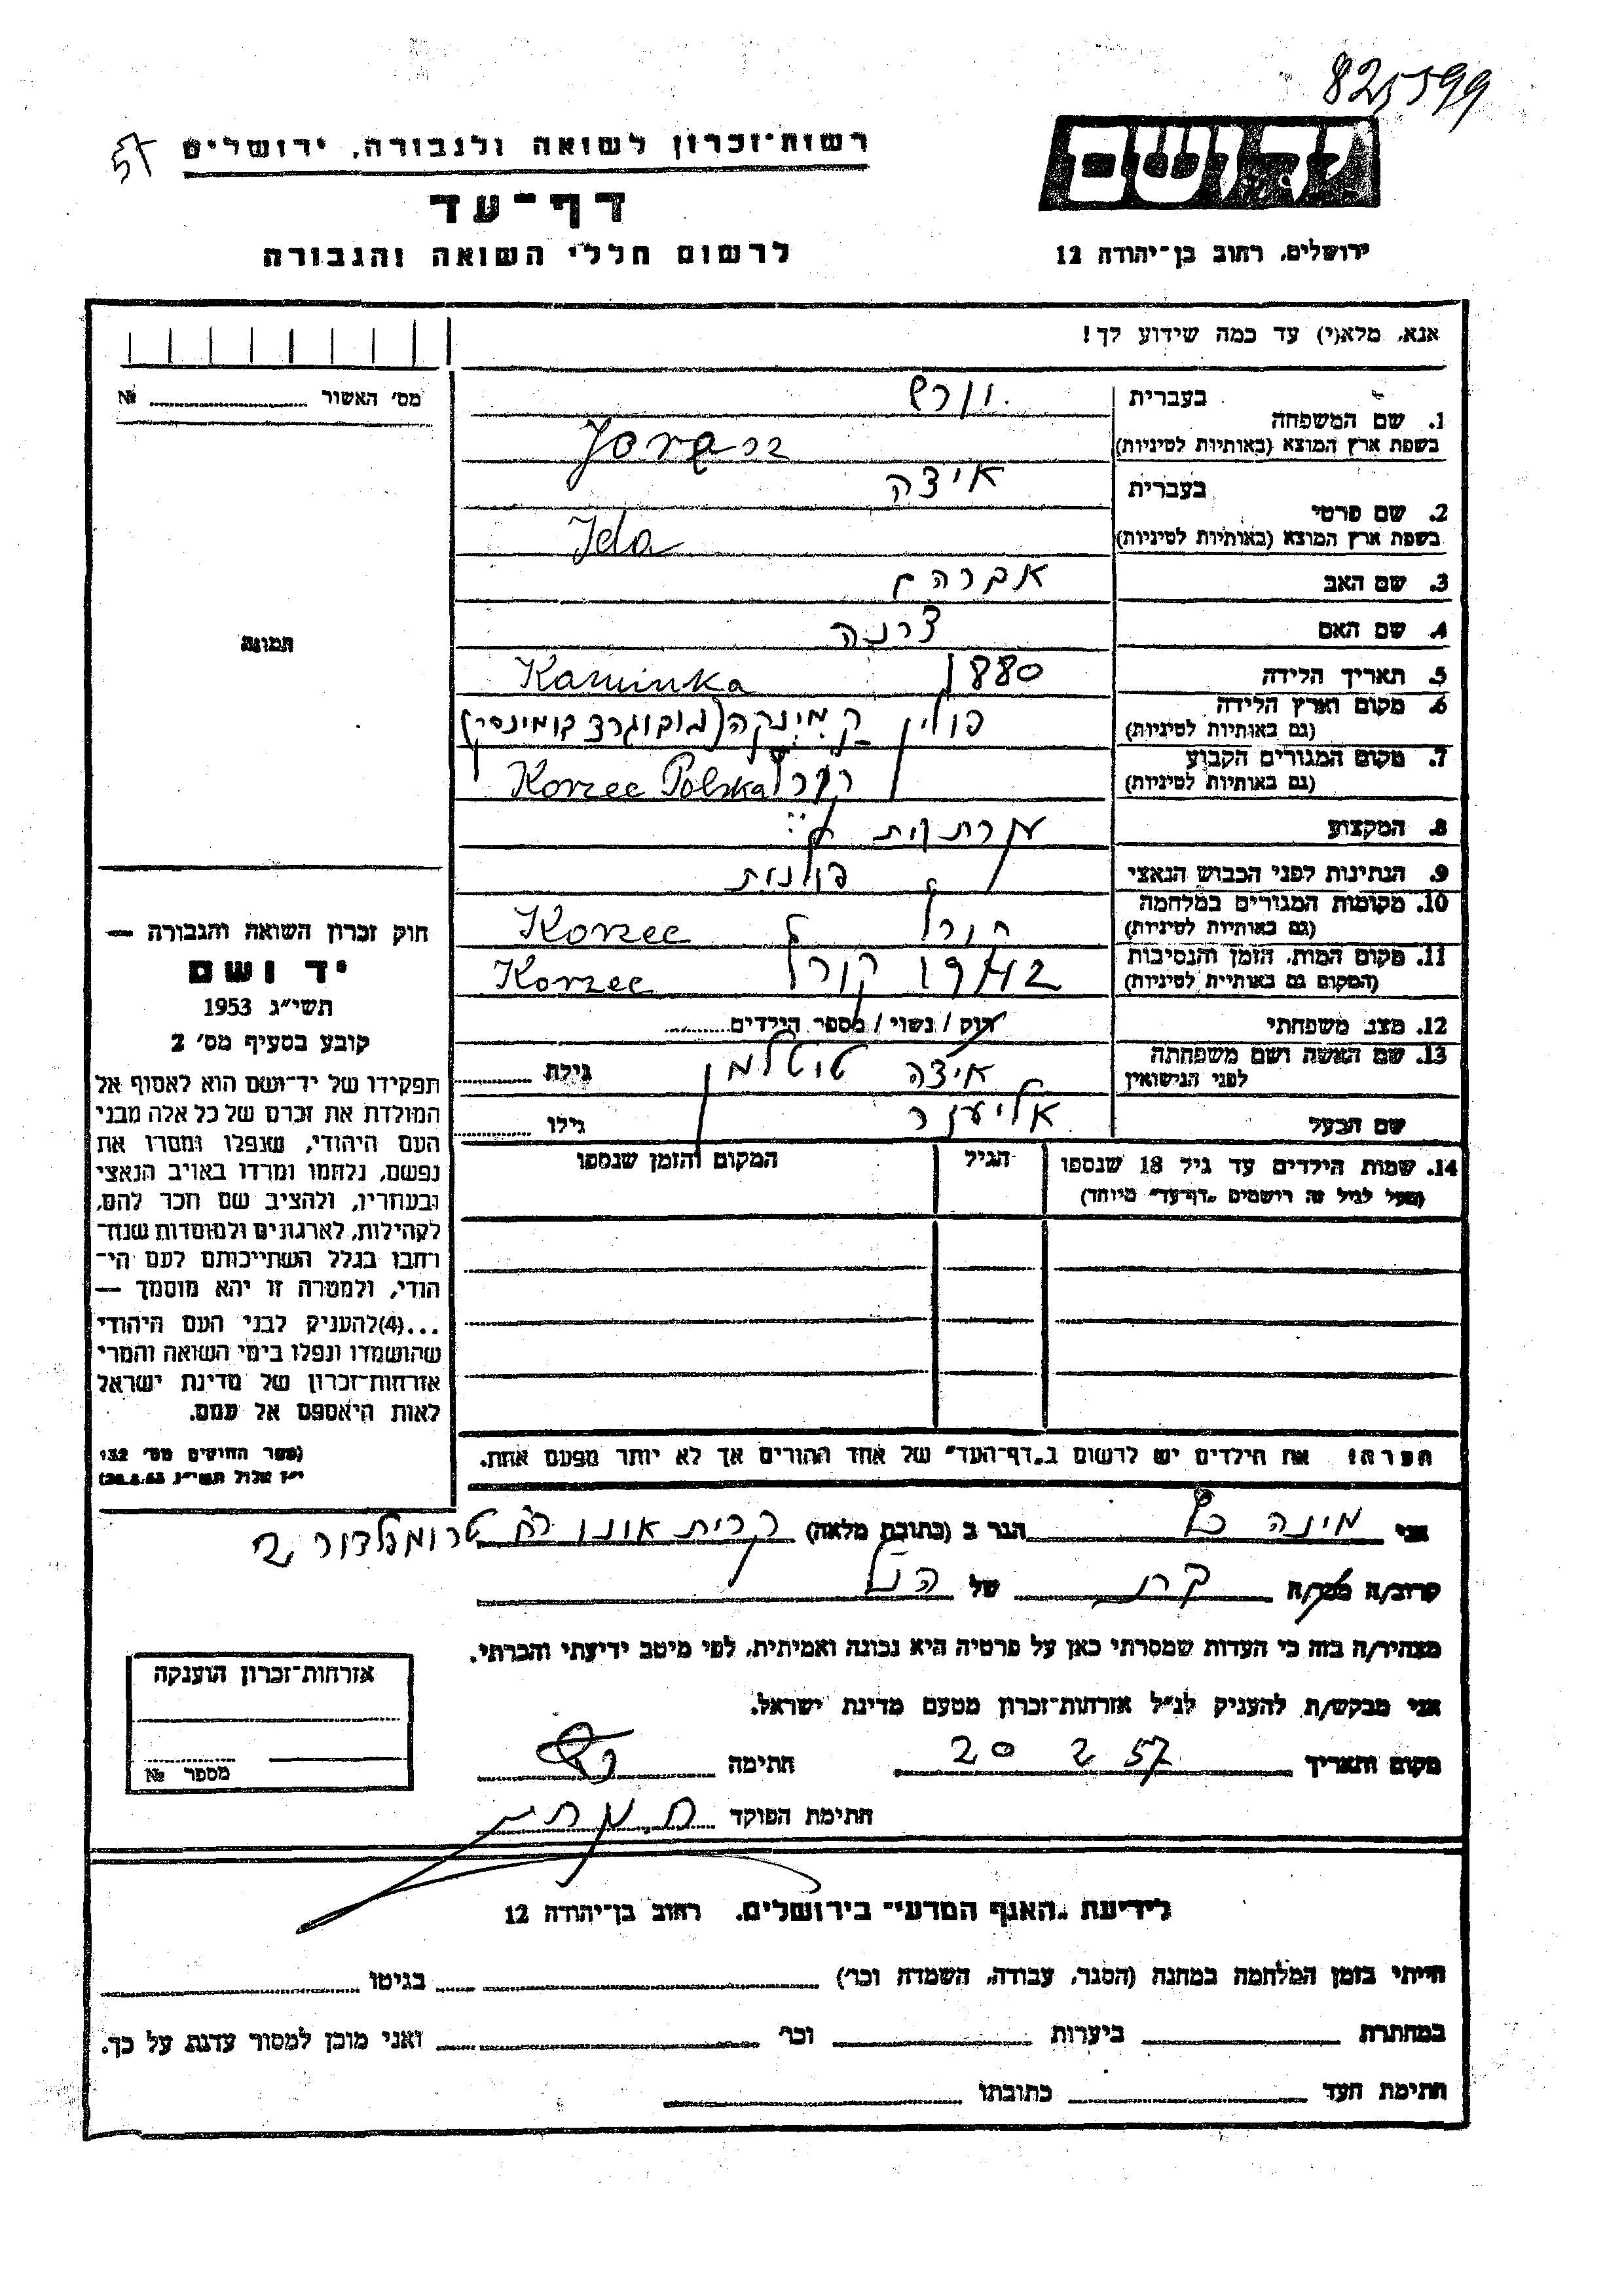 825599
57
רשות־זכרון לשואה ולגבורה, ירושלים
דף־עד
לרשום חללי השואה והגבורה
יד ושם
ירושלים, רחוב בן־יהודה 12
אנא, מלא(י) עד כמה שידוע לך!
מס׳ האשור №
1. שם המשפחה
בעברית
בשפת ארץ המוצא (באותיות לטיניות)
2. שם פרטי
בעברית
איצה
בשפת ארץ המוצא (באותיות לטיניות)
Ida
3. שם האב
אברהם
4. שם האם
5. תאריך הלידה
1880
Kaminka
6. מקום וארץ הלידה
(גם באותיות לטיניות)
פולין קמינקה
7. מקום המגורים הקבוע
(גם באותיות לטיניות)
Korzec Polska
8. המקצוע
עקרת בית
9. הנתינות לפני הכבוש הנאצי
פולנית
10. מקומות המגורים במלחמה
(גם באותיות לטיניות)
Korzec
11. מקום המות, הזמן והנסיבות
(המקום גם באותיות לטיניות)
1942
Korzec
12. מצב משפחתי
רווק / נשוי / מספר הילדים
13. שם האשה ושם משפחתה
לפני הנישואין
איצה טיטלמן
גילה
שם הבעל
אליעזר
גילו
14. שמות הילדים עד גיל 18 שנספו
(מעל לגיל זה רושמים „דף־עד״ מיוחד)
הגיל
המקום והזמן שנספו
הערה: את הילדים יש לרשום ב„דף־העד״ של אחד ההורים אך לא יותר מפעם אחת.
תמונה
חוק זכרון השואה והגבורה —
יד ושם
תשי״ג 1953
קובע בסעיף מס׳ 2
תפקידו של יד־ושם הוא לאסוף אל
המולדת את זכרם של כל אלה מבני
העם היהודי, שנפלו ומסרו את
נפשם, נלחמו ומרדו באויב הנאצי
ובעוזריו, ולהציב שם וזכר להם,
לקהילות, לארגונים ולמוסדות שנח־
רבו בגלל השתייכותם לעם הי־
הודי, ולמטרה זו יהא מוסמך —
...(4)להעניק לבני העם היהודי
שהושמדו ונפלו בימי השואה והמרי
אזרחות־זכרון של מדינת ישראל
לאות היאספם אל עמם.
(ספר החוקים מס׳ 132
י״ז אלול תשי״ג 28.8.53)
אני מינה כץ הגר ב (כתובת מלאה) קרית אונו רח טרומפלדור
קרוב/ה מכר/ה בת של הנ״ל
מצהיר/ה בזה כי העדות שמסרתי כאן על פרטיה היא נכונה ואמיתית, לפי מיטב ידיעתי והכרתי.
אני מבקש/ת להעניק לנ״ל אזרחות־זכרון מטעם מדינת ישראל.
מקום ותאריך 20 2 57 חתימה
חתימת הפוקד
אזרחות־זכרון הוענקה
מספר №
לידיעת „האגף המדעי״ בירושלים, רחוב בן־יהודה 12
הייתי בזמן המלחמה במחנה (הסגר, עבודה, השמדה וכו׳) בגיטו
במחתרת ביערות וכו׳ ואני מוכן למסור עדות על כך.
חתימת העד כתובתו